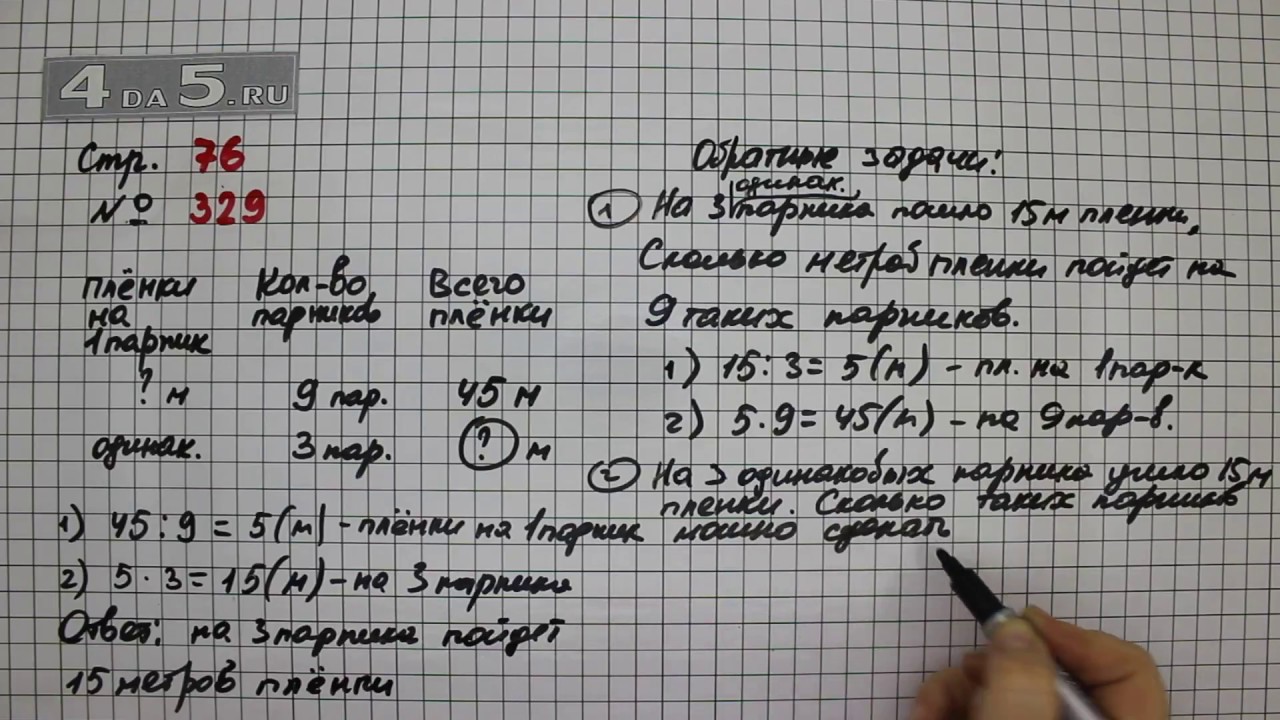 4DA5.RU
Стр. 76
№ 329
плёнки на 1парник
Кол-во парников
Всего плёнки
? м 9 пар. 45 м
одинак. 3 пар. ? м
1) 45:9 = 5(м) - плёнки на 1парник
2) 5·3=15(м) - на 3 парника
Ответ: на 3 парника пойдет
15 метров плёнки
Обратные задачи:
одинак.
1 На 3 парника пошло 15м пленки,
Сколько метров пленки пойдет на
9 таких парников.
1) 15:3= 5(м) - пл. на 1пар-к
2) 5·9= 45(м) - на 9 пар-в.
2 На 3 одинаковых парника ушло 15м
пленки. Сколько таких парников
можно сделать